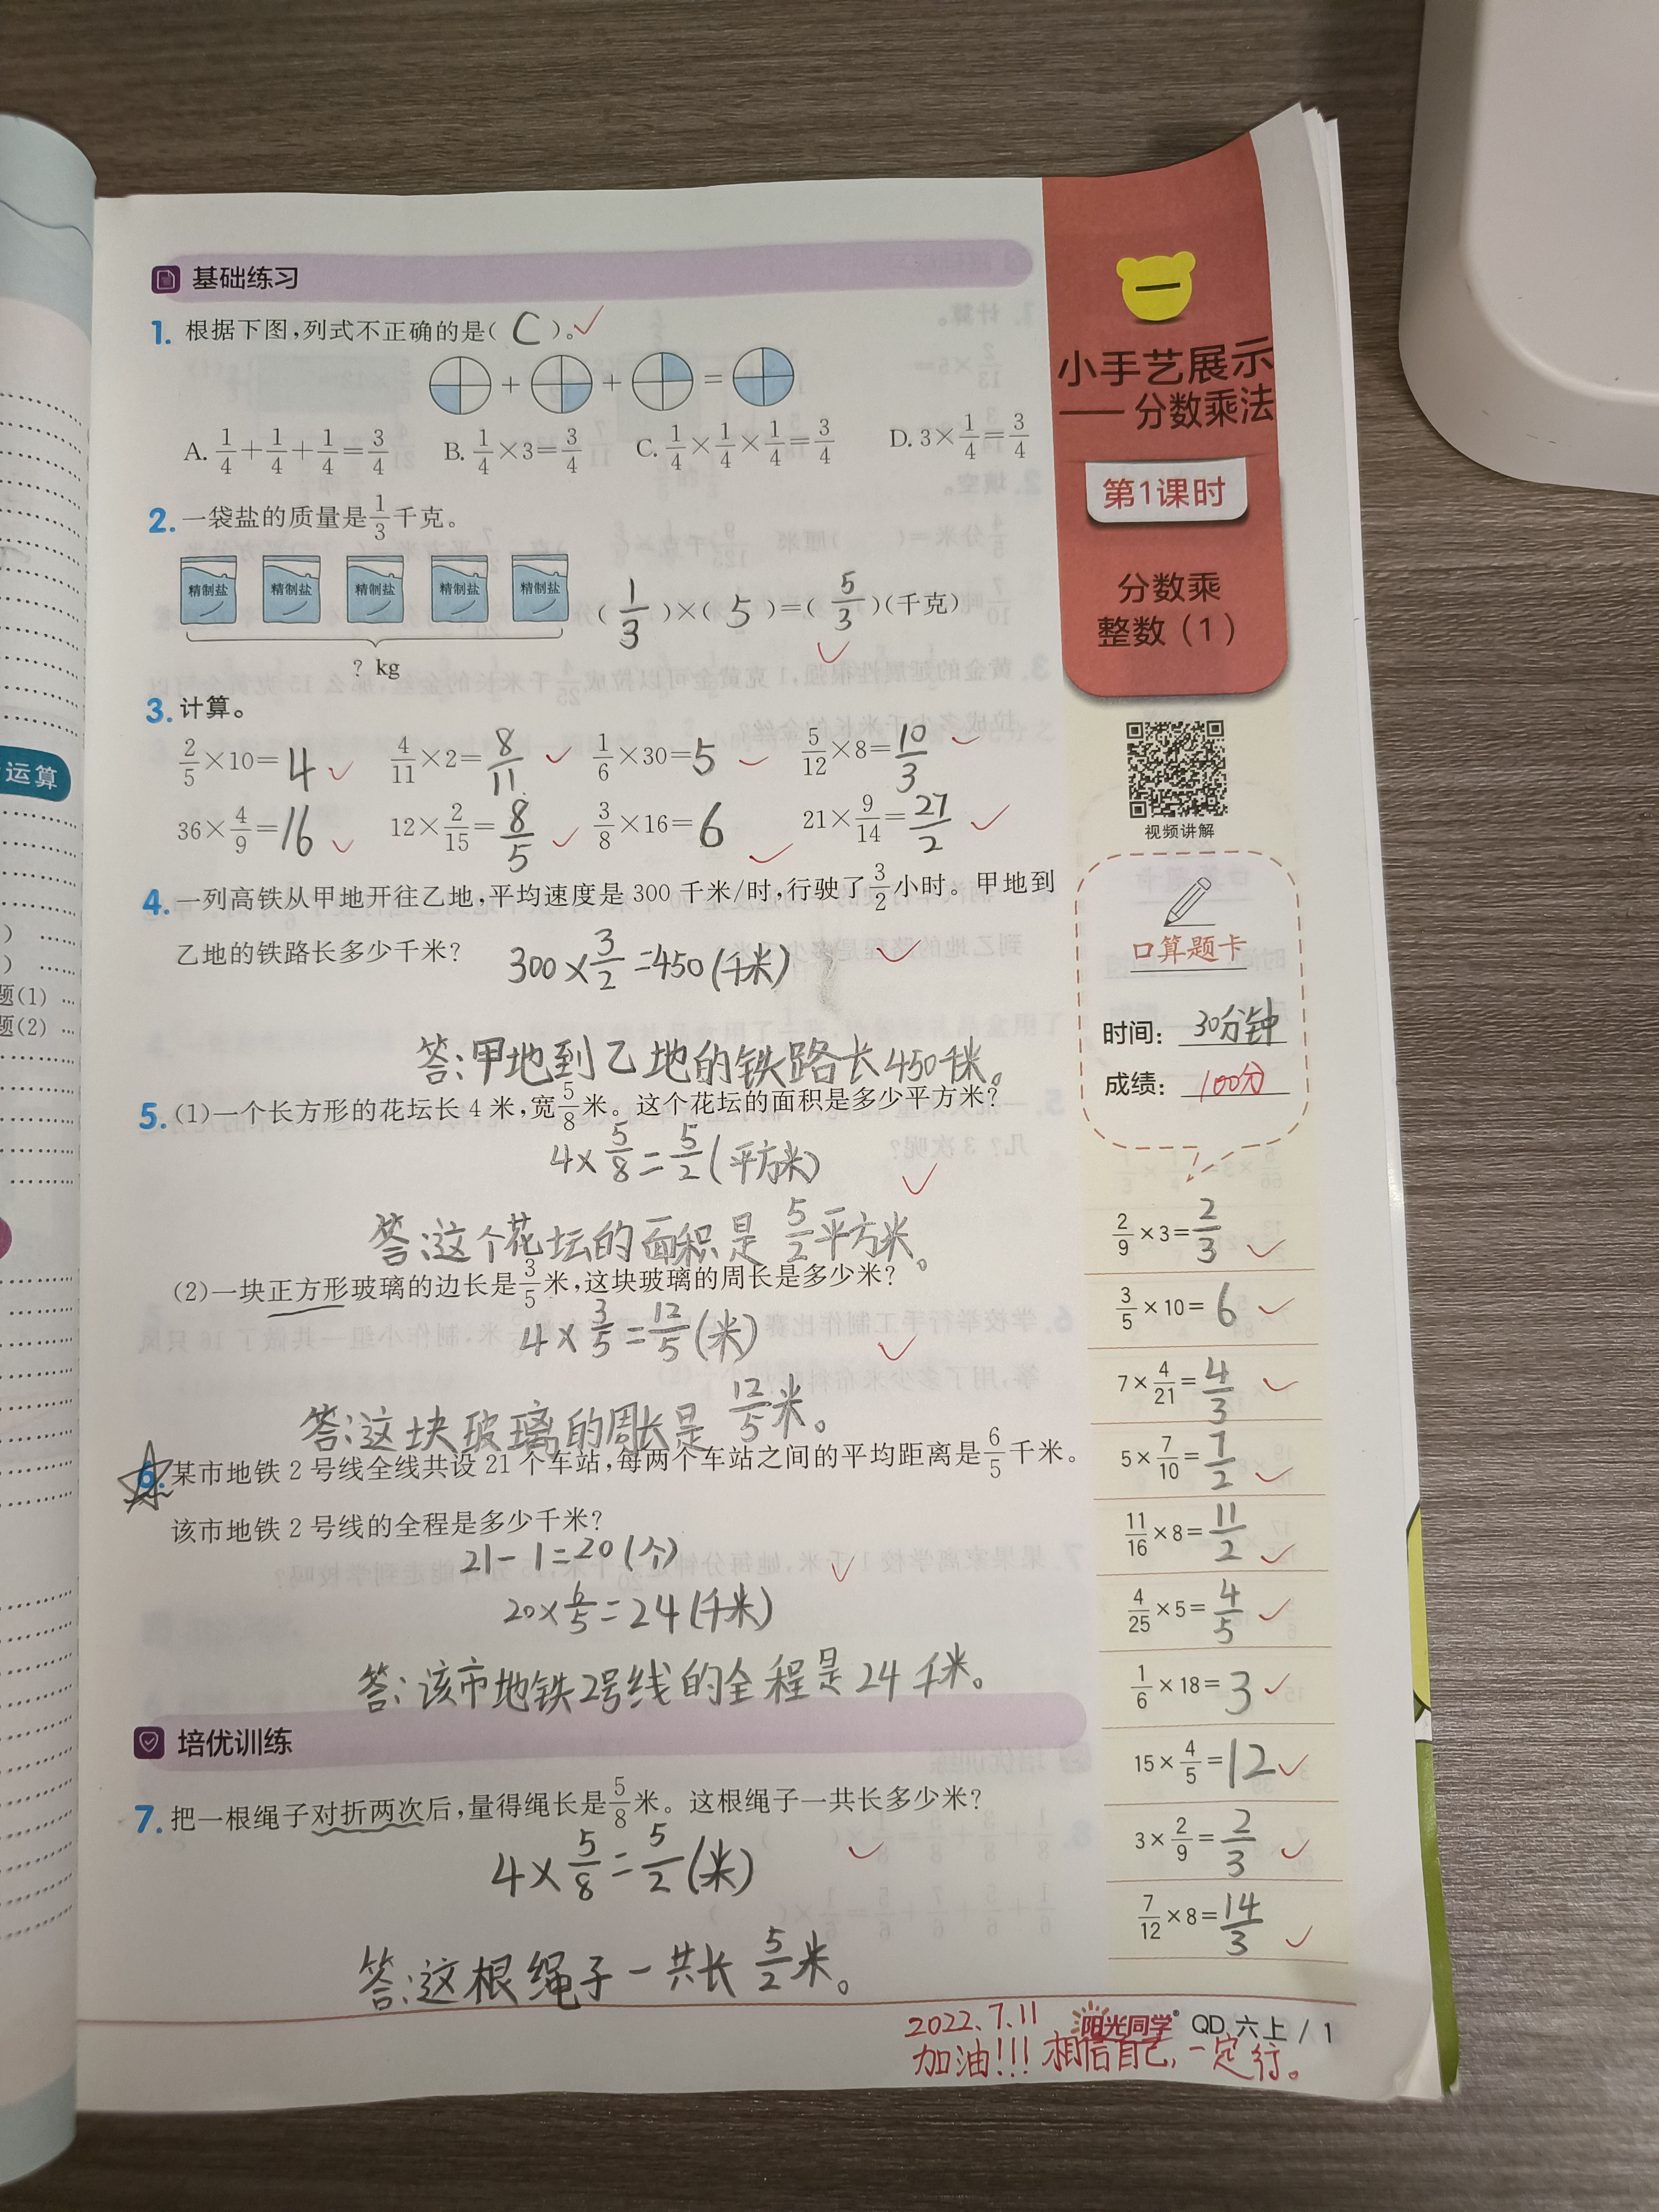 基础练习
1. 根据下图,列式不正确的是( C )。
+ + =
A. 1/4+1/4+1/4=3/4 B. 1/4×3=3/4 C. 1/4×1/4×1/4=3/4 D. 3×1/4=3/4
2. 一袋盐的质量是1/3千克。
精制盐 精制盐 精制盐 精制盐 精制盐
( 1/3 )×( 5 )=( 5/3 )(千克)
? kg
3. 计算。
2/5×10=4 4/11×2=8/11 1/6×30=5 5/12×8=10/3
36×4/9=16 12×2/15=8/5 3/8×16=6 21×9/14=27/2
4. 一列高铁从甲地开往乙地,平均速度是 300 千米/时,行驶了3/2小时。甲地到
乙地的铁路长多少千米?
300×3/2=450(千米)
答:甲地到乙地的铁路长450千米。
5. (1)一个长方形的花坛长 4 米,宽5/8米。这个花坛的面积是多少平方米?
4×5/8=5/2(平方米)
答:这个花坛的面积是5/2平方米。
(2)一块正方形玻璃的边长是3/5米,这块玻璃的周长是多少米?
4×3/5=12/5(米)
答:这块玻璃的周长是12/5米。
6. 某市地铁 2 号线全线共设 21 个车站,每两个车站之间的平均距离是6/5千米。
该市地铁 2 号线的全程是多少千米?
21-1=20(个)
20×6/5=24(千米)
答:该市地铁2号线的全程是24千米。
培优训练
7. 把一根绳子对折两次后,量得绳长是5/8米。这根绳子一共长多少米?
4×5/8=5/2(米)
答:这根绳子一共长5/2米。
一
小手艺展示
——分数乘法
第1课时
分数乘
整数(1)
视频讲解
口算题卡
时间: 30分钟
成绩: 100分
2/9×3=2/3
3/5×10=6
7×4/21=4/3
5×7/10=7/2
11/16×8=11/2
4/25×5=4/5
1/6×18=3
15×4/5=12
3×2/9=2/3
7/12×8=14/3
2022.7.11
阳光同学 QD 六上 / 1
加油!!! 相信自己,一定行。
运算
题(1)
题(2)